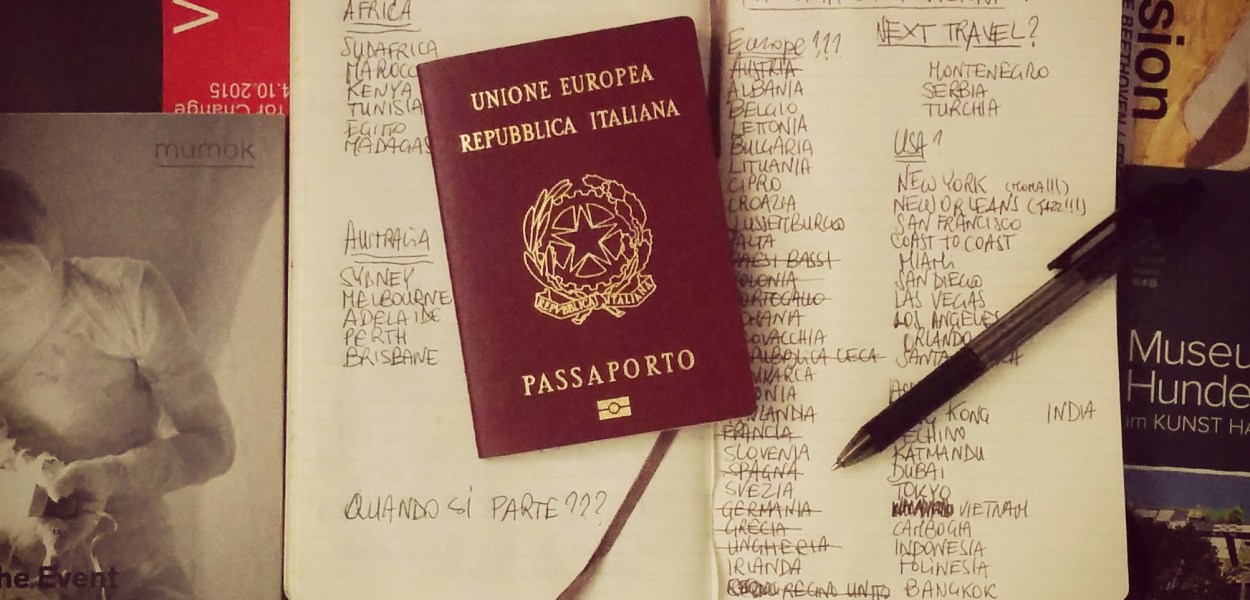 AFRICA
SUDAFRICA
MAROCCO
KENYA
TUNISIA
EGITTO
MADAGAS
AUSTRALIA
SYDNEY
MELBOURNE
ADELAIDE
PERTH
BRISBANE
QUANDO SI PARTE???
UNIONE EUROPEA
REPUBBLICA ITALIANA
REPVBBLICA ITALIANA
PASSAPORTO
NEXT TRAVEL?
Europe!!!
AUSTRIA
ALBANIA
BELGIO
LETTONIA
BULGARIA
LITUANIA
CIPRO
CROAZIA
LUSSEMBURGO
ALTA
AESI BASSI
OLONIA
ORTOGALLO
OMANIA
OVACCHIA
PUBBLICA CECA
NIMARCA
ONIA
NLANDIA
FRANCIA
SLOVENIA
SPAGNA
SVEZIA
GERMANIA
GRECIA
UNGHERIA
IRLANDA
REGNO UNITO
MONTENEGRO
SERBIA
TURCHIA
USA
NEW YORK (MOMA!!!)
NEW ORLEANS (JAZZ!!!)
SAN FRANCISCO
COAST TO COAST
MIAMI
SAN DIEGO
LAS VEGAS
LOS ANGELES
ORLANDO
SANTA
KONG INDIA
PECHINO
KATMANDU
DUBAI
TOKYO
VIETNAM
CAMBOGIA
INDONESIA
POLINESIA
BANGKOK
mumok
he Event
for Change
4.10.2015
V
sion
BEETHOVEN
Museu
Hunde
im KUNST HA